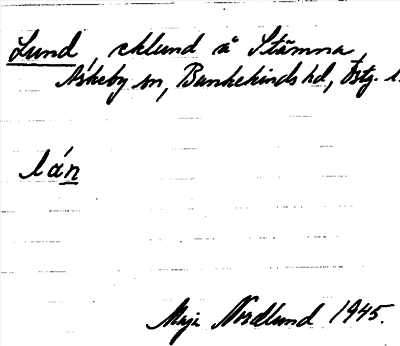 Lund, cklund å Stämna,
Askeby sn, Bankekinds hd, Östg. l.
lán
Maja Nordlund 1945.